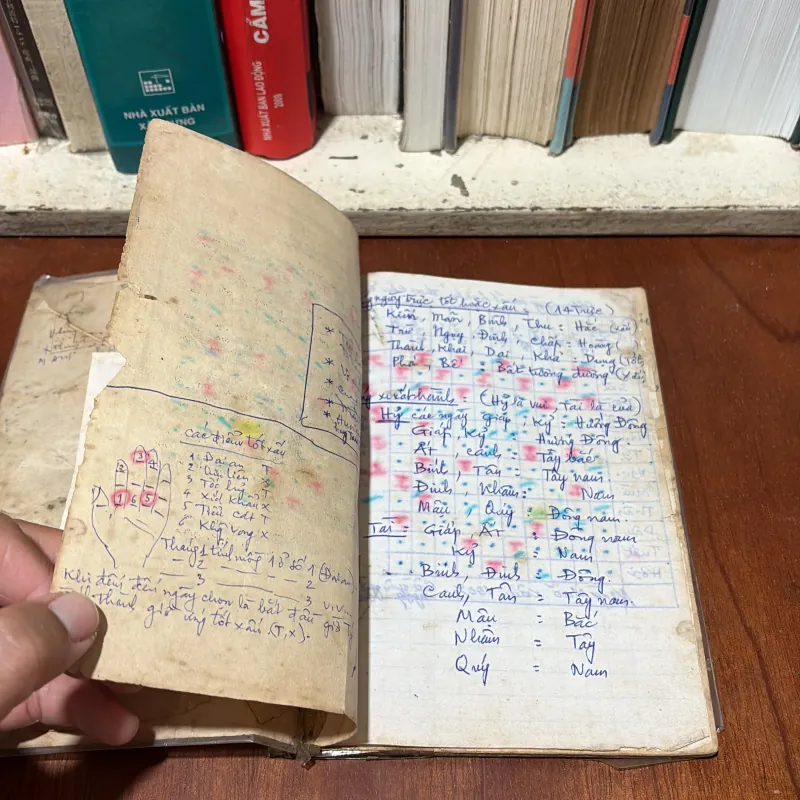 NHÀ XUẤT BẢN
XÂY DỰNG
CẨM
NHÀ XUẤT BẢN LAO ĐỘNG
2005
Các điểm tốt xấu
1 Đại an T
2
3 Tốc hỷ T
4 Xích khẩu X
5 Tiểu cát T
6 Không vong X
3
2
1 6 5
Tháng 1 tính mồng 1 ở số 1 (Đại an)
— 2 — — 2
— 3 3 v.v...
Khi đếm đến ngày chọn là bắt đầu giờ Tý
thành giờ ứng tốt xấu (T, X).
ngày trực tốt hoặc xấu: (14 Trực)
Kiến, Mãn, Bình, Thu = Hắc (xấu)
Trừ, Nguy, Định, Chấp = Hoàng (
Thành, Khai, Đại, Khả = Dụng (Tốt)
Phá, Bế = Bất tương đương (xấu)
xuất hành: (Hỷ là vui, Tài là của)
Hỷ các ngày Giáp, Kỷ = Hướng Đông
Giáp, Kỷ = Hướng Đông
Ất, Canh = Tây bắc
Bính, Tân = Tây nam
Đinh, Nhâm = Nam
Mậu, Quý = Đông nam.
Tài = Giáp, Ất = Đông nam
Kỷ = Nam
Bính, Đinh = Đông.
Canh, Tân = Tây nam.
Mậu = Bắc
Nhâm = Tây
Quý = Nam